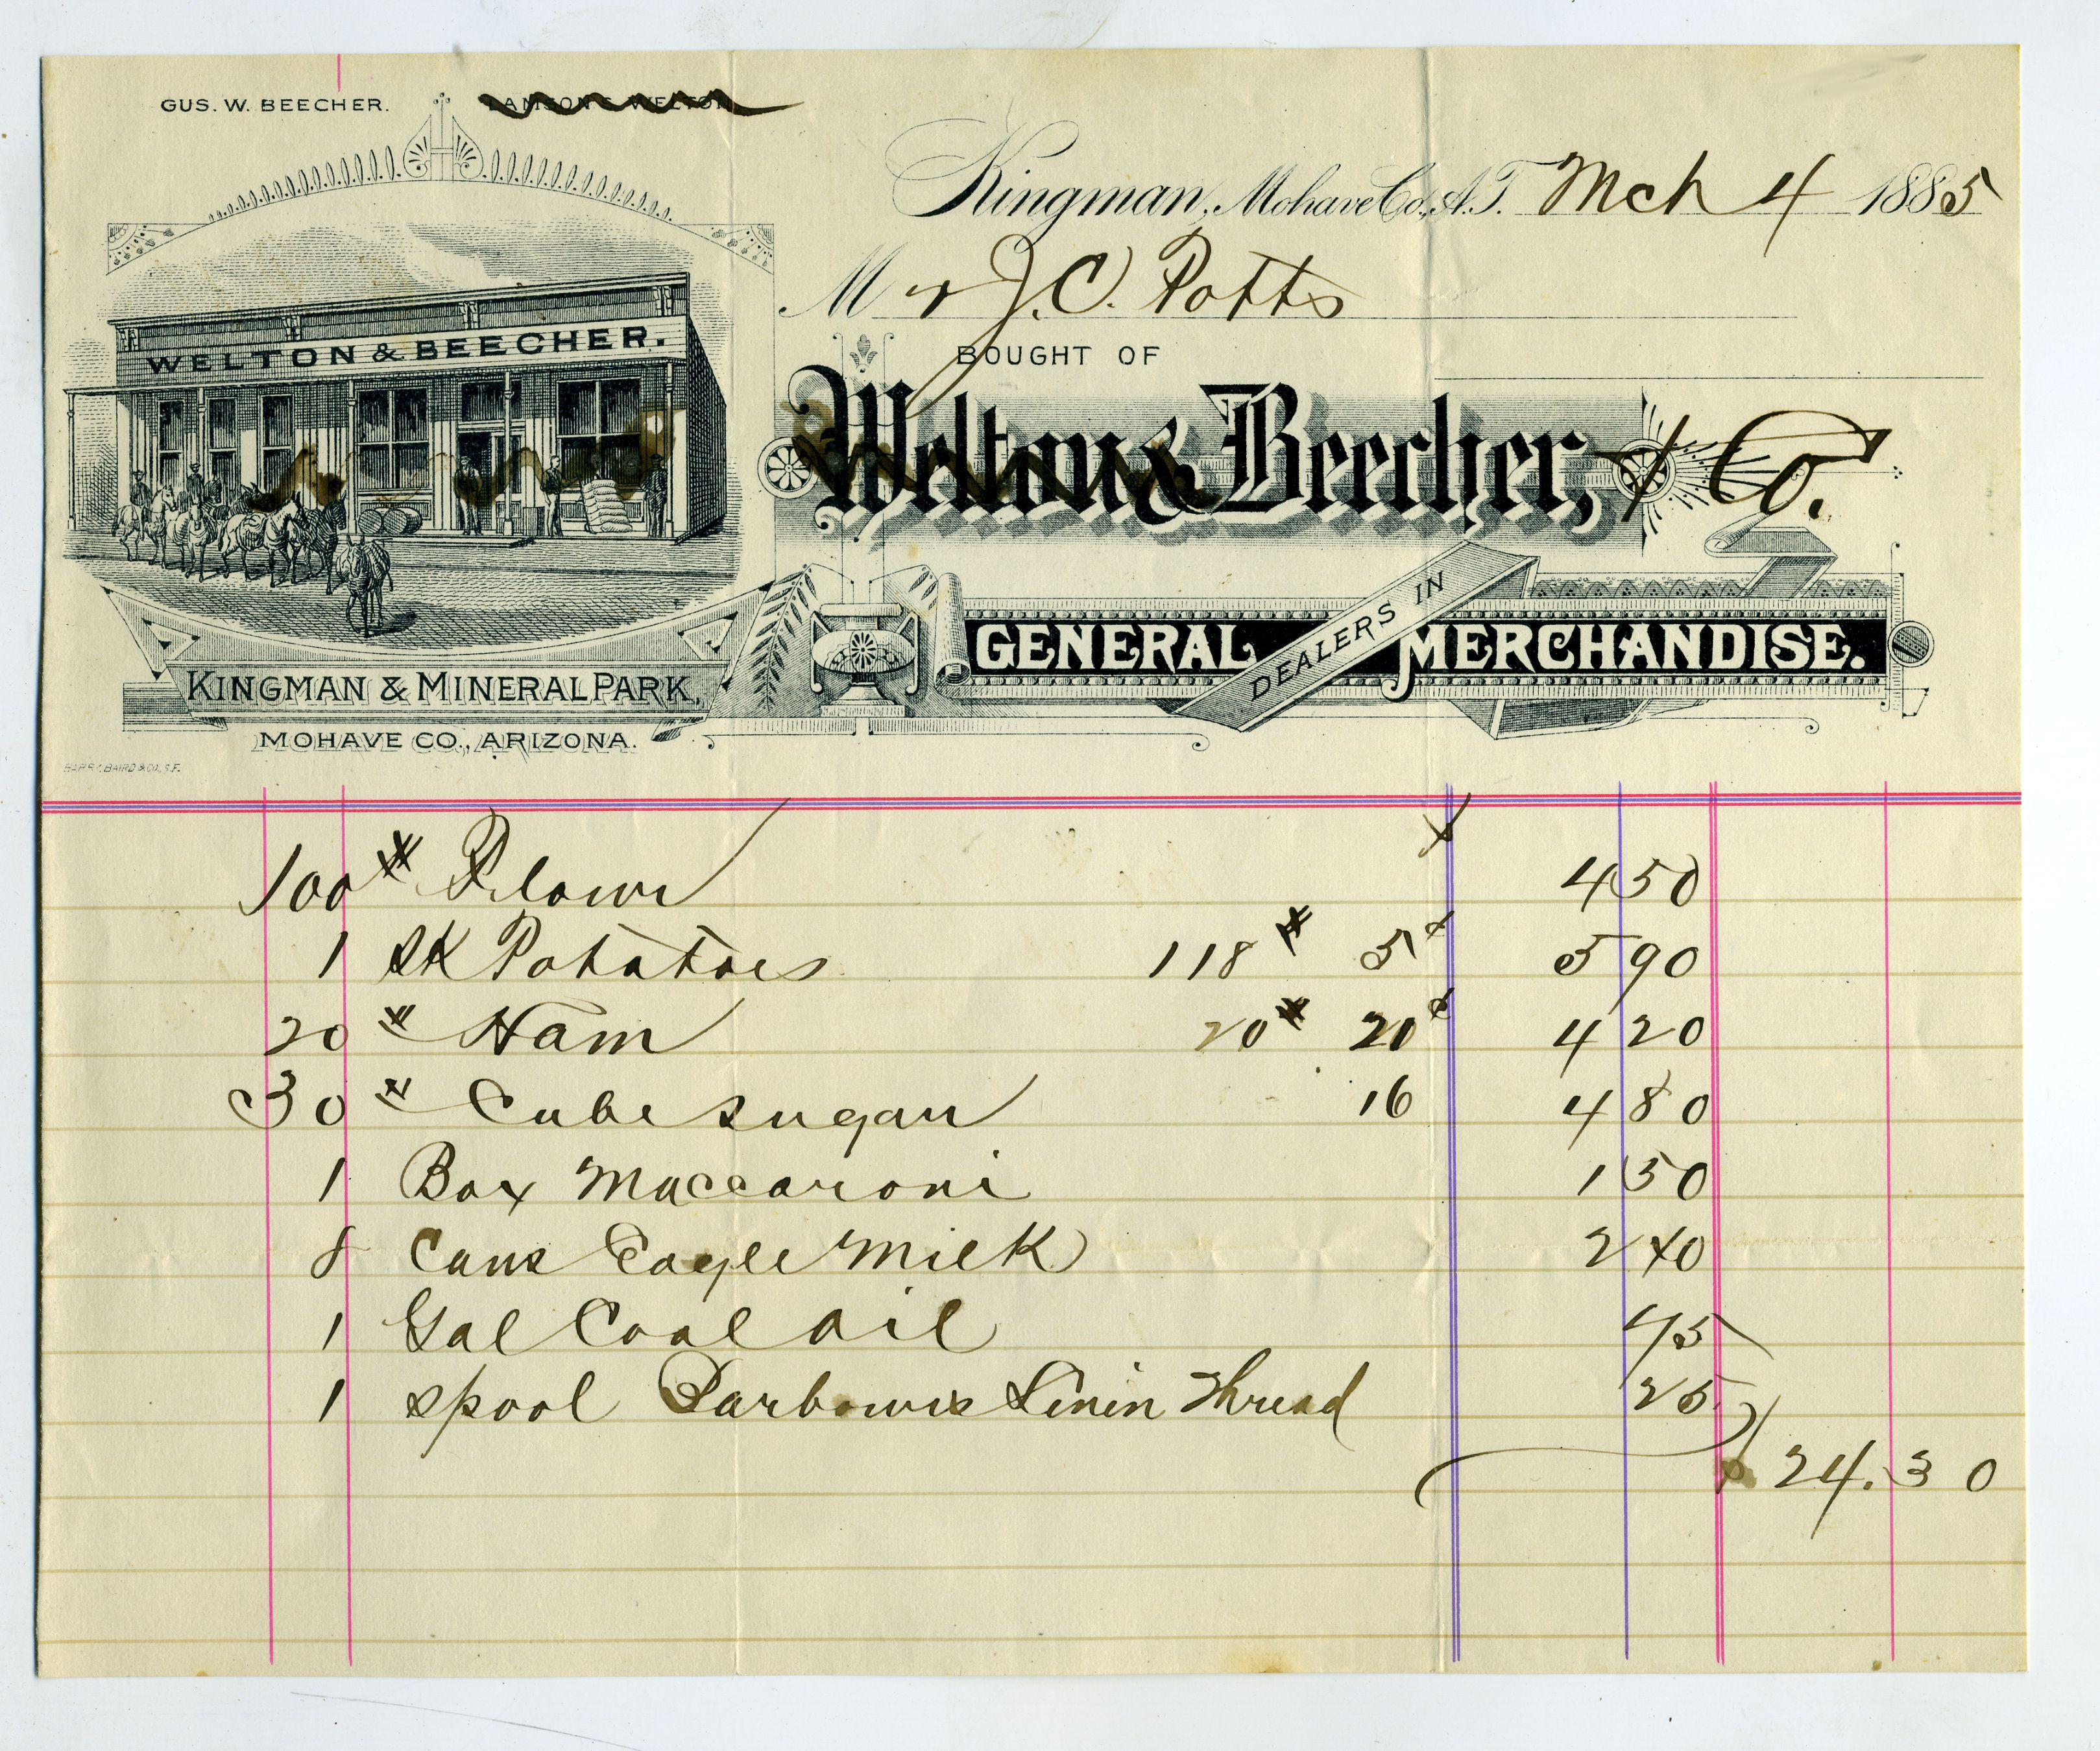 GUS. W. BEECHER. LAMSON S. WELTON
Kingman, Mohave Co., A.T. Mch 4 1885
Mr J. C. Potts
BOUGHT OF
WELTON & BEECHER.
Welton & Beecher, & Co.
DEALERS IN
GENERAL MERCHANDISE.
KINGMAN & MINERAL PARK,
MOHAVE CO., ARIZONA.
BAIRD & CO, S.F.
100 # Flour 4 50
1 sk Potatoes 118 # 5¢ 5 90
20 # Ham 20 # 20¢ 4 20
30 # Cube sugar 16 4 80
1 Box Maccaroni 1 50
8 Cans Eagle Milk 2 40
1 Gal Coal oil 75
1 spool Barbours Linin Thread 25
$ 24.30